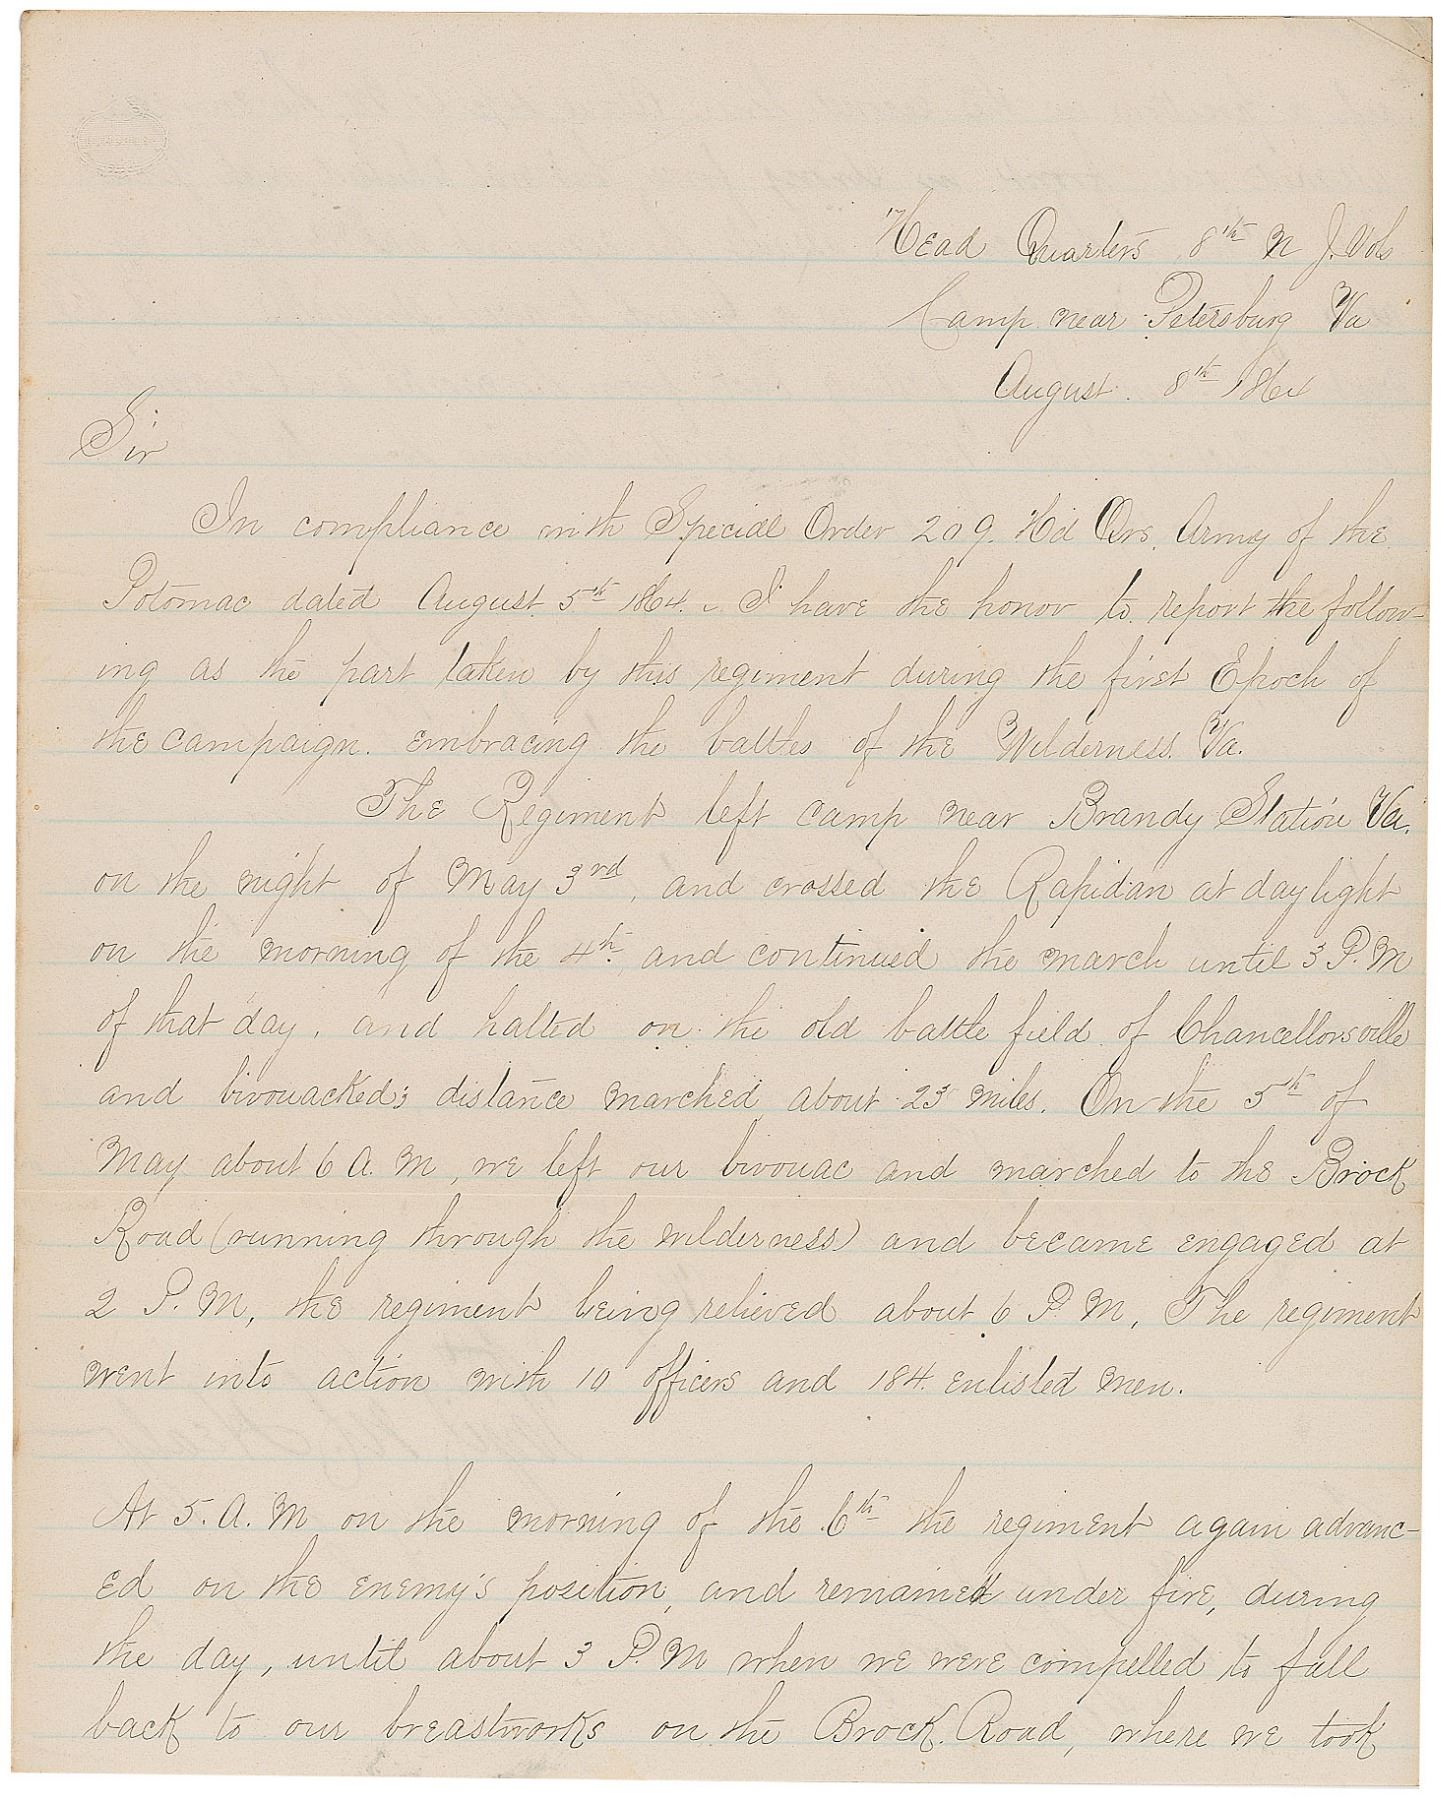 Head Quarters 8th N J. Vols
Camp near Petersburg Va
August. 8th 1864
Sir
In compliance with Special Order 209. Hd Qrs. Army of the
Potomac dated August 5th 1864. I have the honor to report the follow-
ing as the part taken by this regiment during the first Epoch of
the campaign. embracing the battles of the Wilderness. Va.
The Regiment left camp near Brandy Station Va.
on the night of May 3rd, and crossed the Rapidan at daylight
on the morning of the 4th and continued the march until 3 P.M
of that day, and halted on the old battle field of Chancellorsville
and bivouacked; distance marched about 23 miles. On the 5th of
May about 6 A. M, we left our bivouac and marched to the Brock
Road (running through the wilderness) and became engaged at
2 P. M, the regiment being relieved about 6 P. M, The regiment
went into action with 10 officers and 184 enlisted men.
At 5. A. M on the morning of the 6th the regiment again advanc-
ed on the enemy's position, and remained under fire, during
the day, until about 3 P. M when we were compelled to fall
back to our breastworks on the Brock. Road, where we took